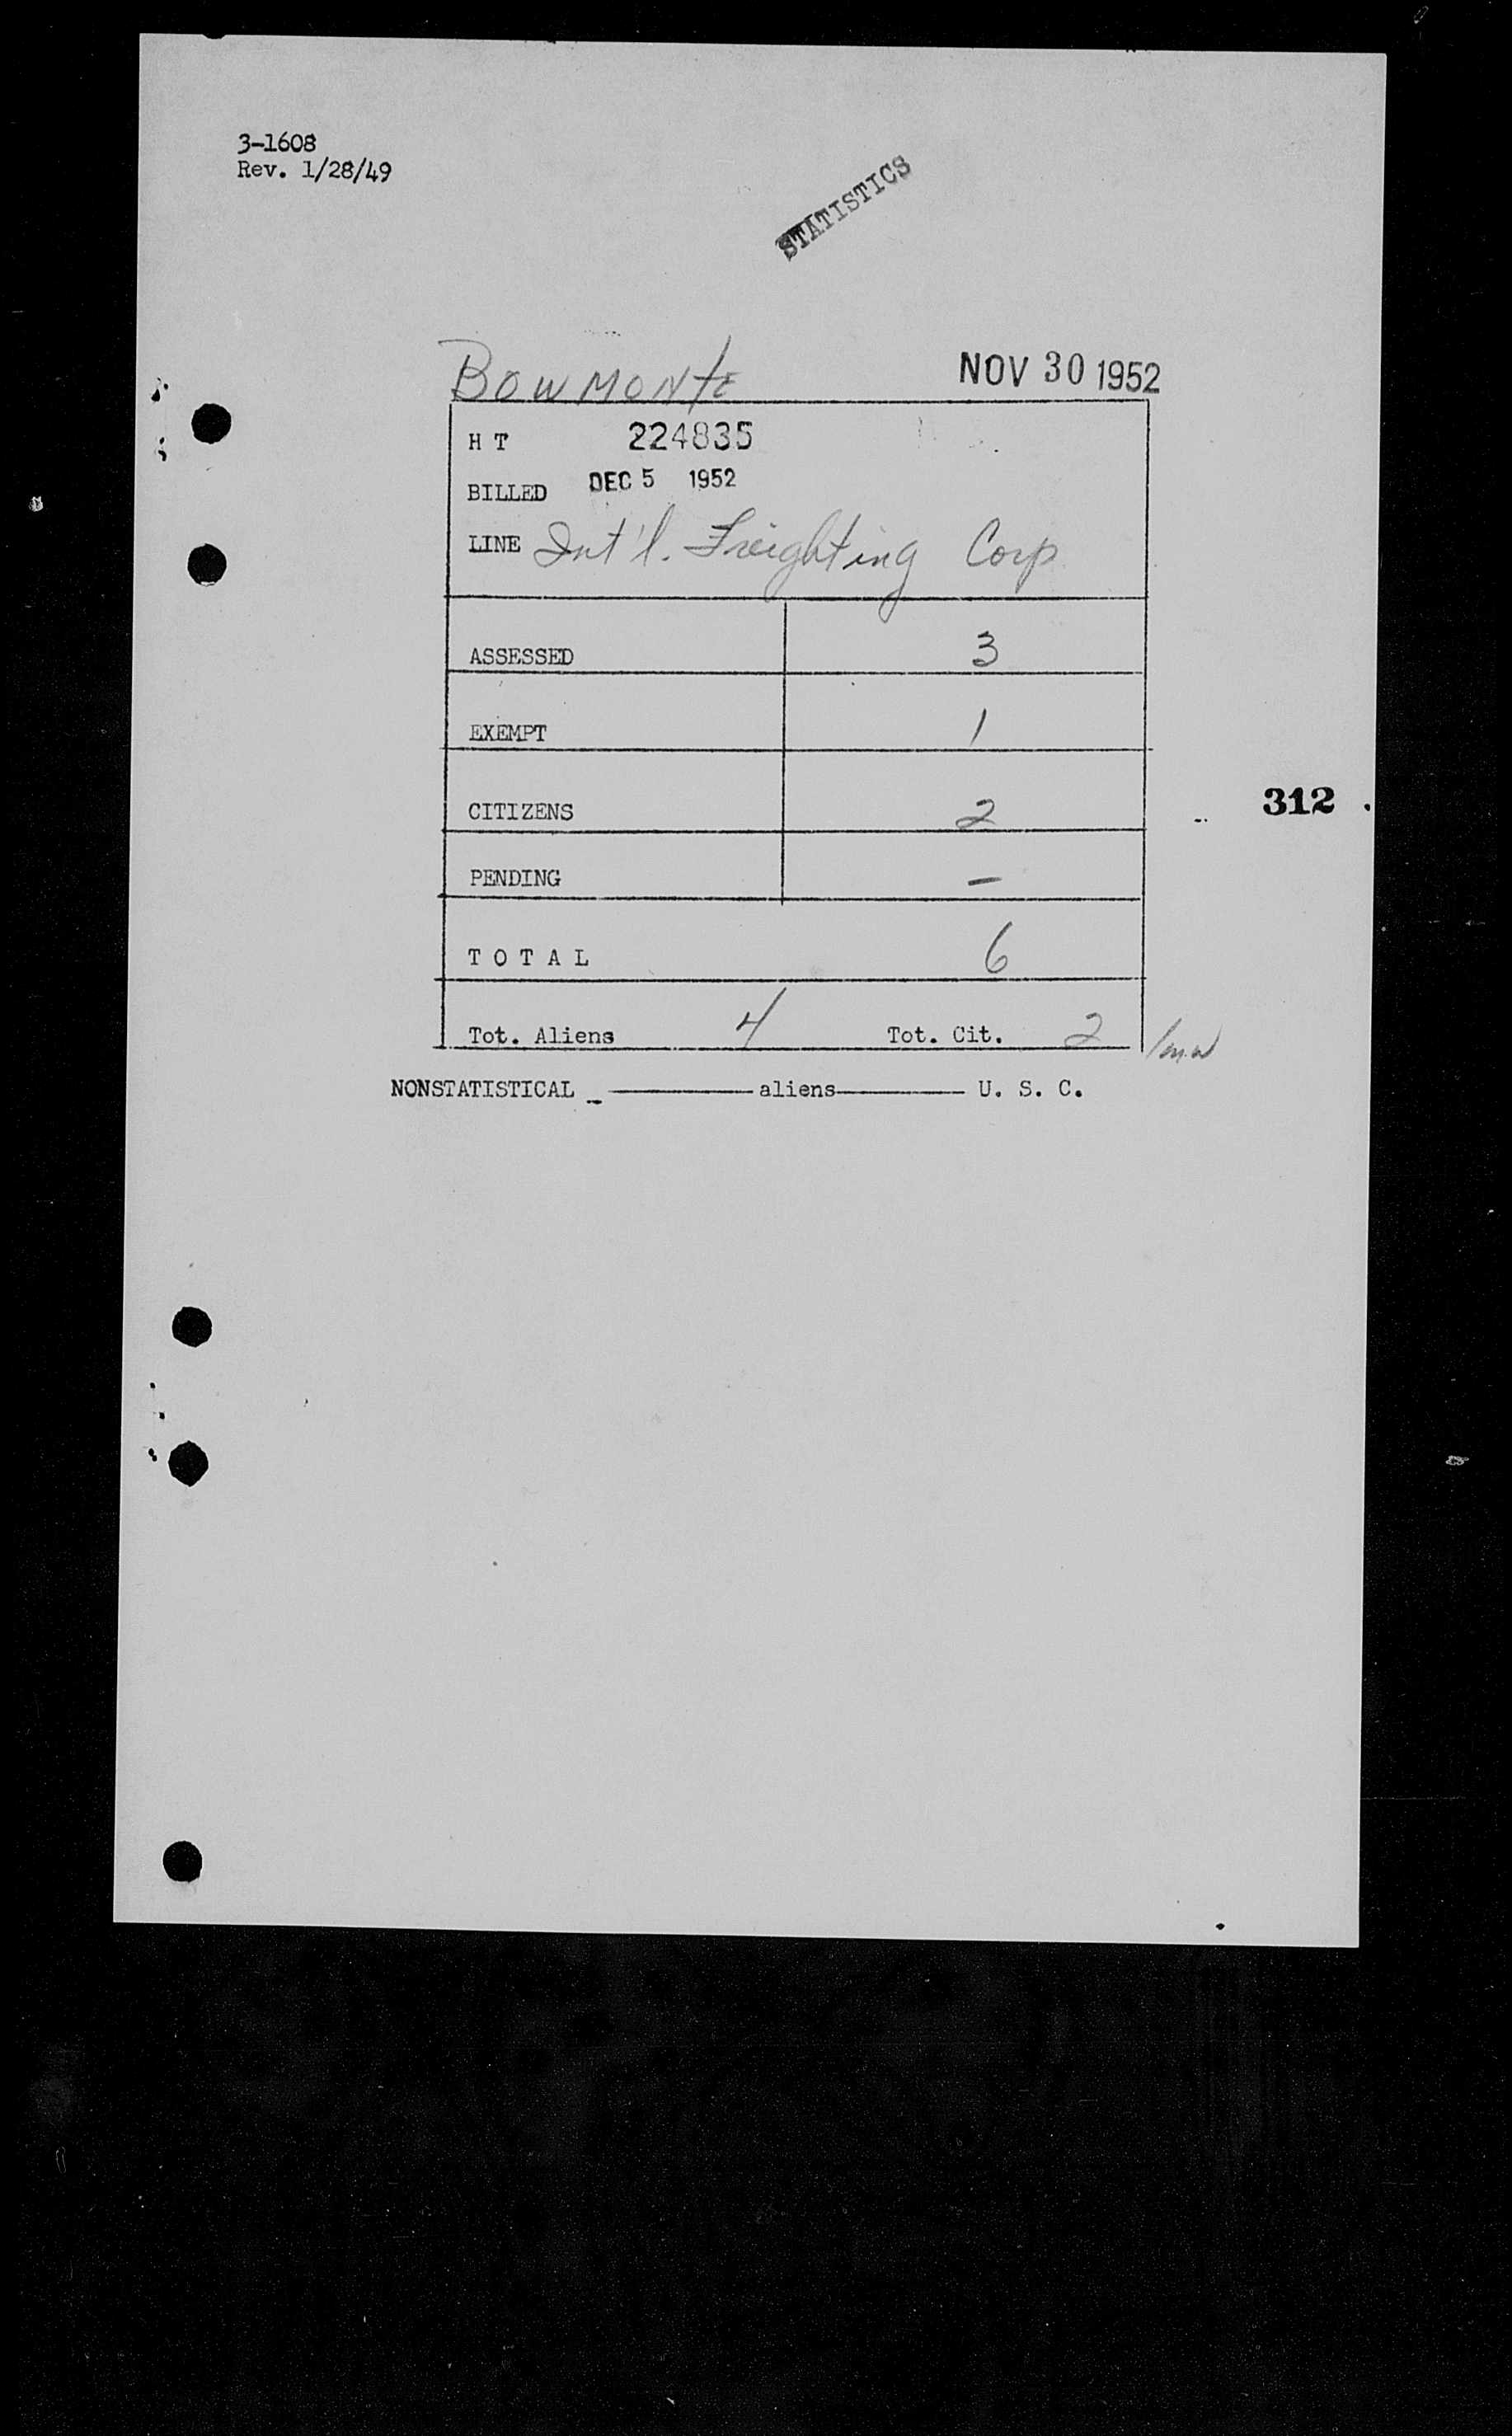 3-1608
Rev. 1/28/49
STATISTICS
BOWMONTE
NOV 30 1952
H T 224835
BILLED DEC 5 1952
LINE Int'l. Freighting Corp
ASSESSED 3
EXEMPT 1
CITIZENS 2
312
PENDING —
T O T A L 6
Tot. Aliens 4 Tot. Cit. 2
NONSTATISTICAL _ ———— aliens ———— U. S. C.